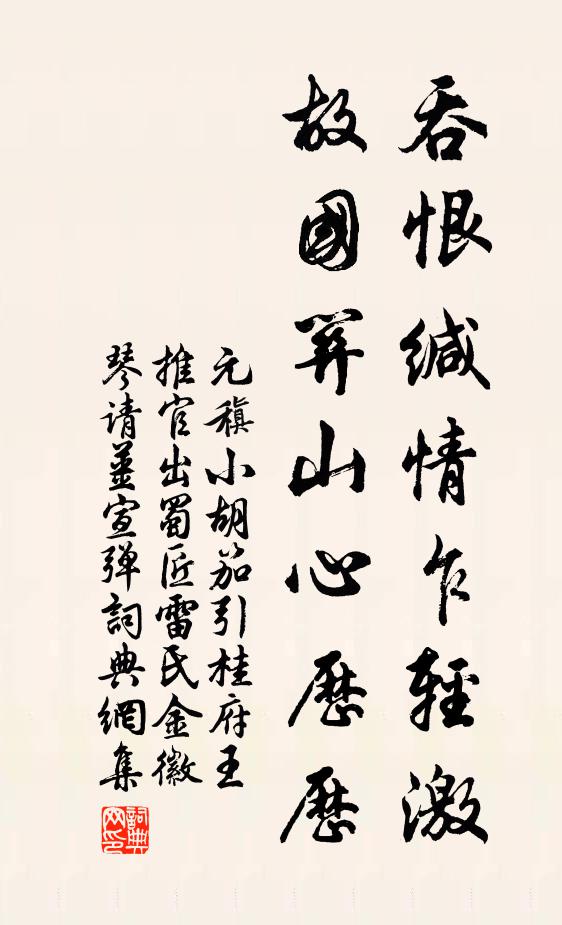 吞恨缄情乍輕激
故國關山心歷歷
元稹小胡笳引桂府王
推官出蜀匠雷氏金徽
琴请姜宣弹詞典網集
詞典网印